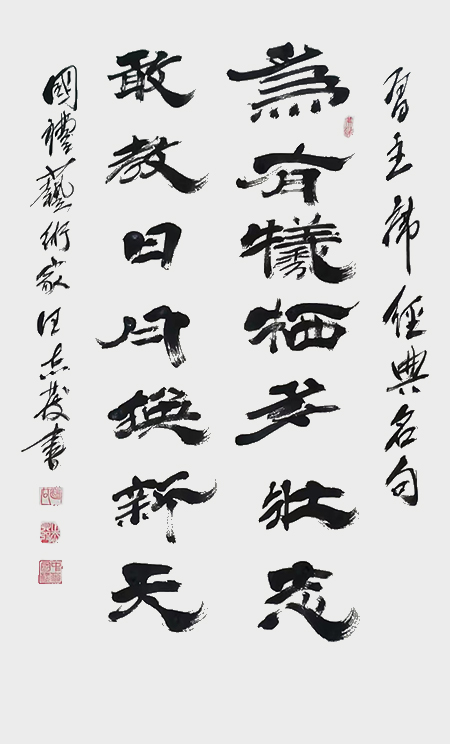 習主席經典名句
為有犧牲多壯志
敢教日月換新天
國禮藝術家汪志發書